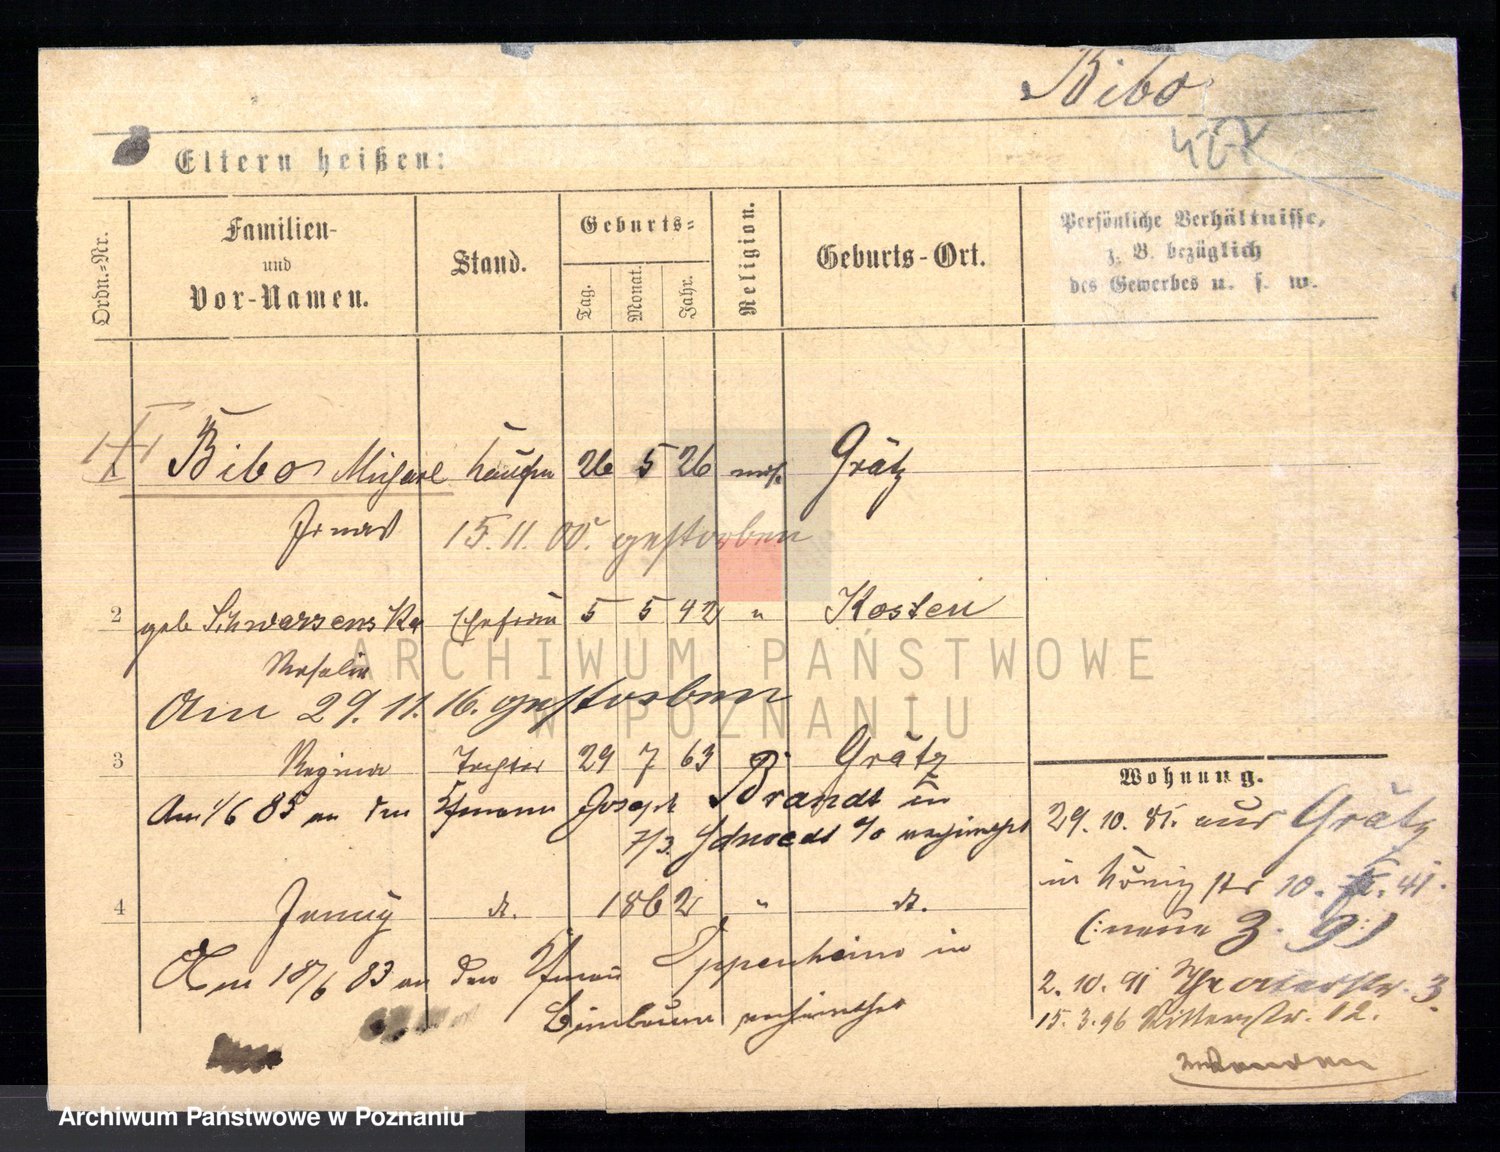 Bibo
427
Eltern heißen:
Ordn.-Nr.
Familien-
und
Vor-Namen.
Stand.
Geburts-
Tag.
Monat.
Jahr.
Religion.
Geburts-Ort.
Persönliche Verhältnisse,
z. B. bezüglich
des Gewerbes u. s. w.
1 Bibo Michael Kaufm 26 5 26 mos. Grätz
15. 11. 00. gestorben
2 geb Schwarzenska Ehefrau 5 5 42 " Kosten
Rosalie
Am 29. 11. 16. gestorben
3 Regina Tochter 29 7 63 " Grätz
Am 1/6 85 an den Kfmann Joseph Brandt in
7/3. Schwedt a/o verheirathet
4 Jenny dt. 1862 " dt.
Am 18/6 83 an den Kfmann Oppenheim in
Birnbaum verheirathet
Wohnung.
29. 10. 81. aus Grätz
in Königstr 10. 41.
(: neue 3. 9 :)
2. 10. 91 Theaterstr. 3.
15. 3. 96 Ritterstr. 12.
ARCHIWUM PAŃSTWOWE
W POZNANIU
Archiwum Państwowe w Poznaniu